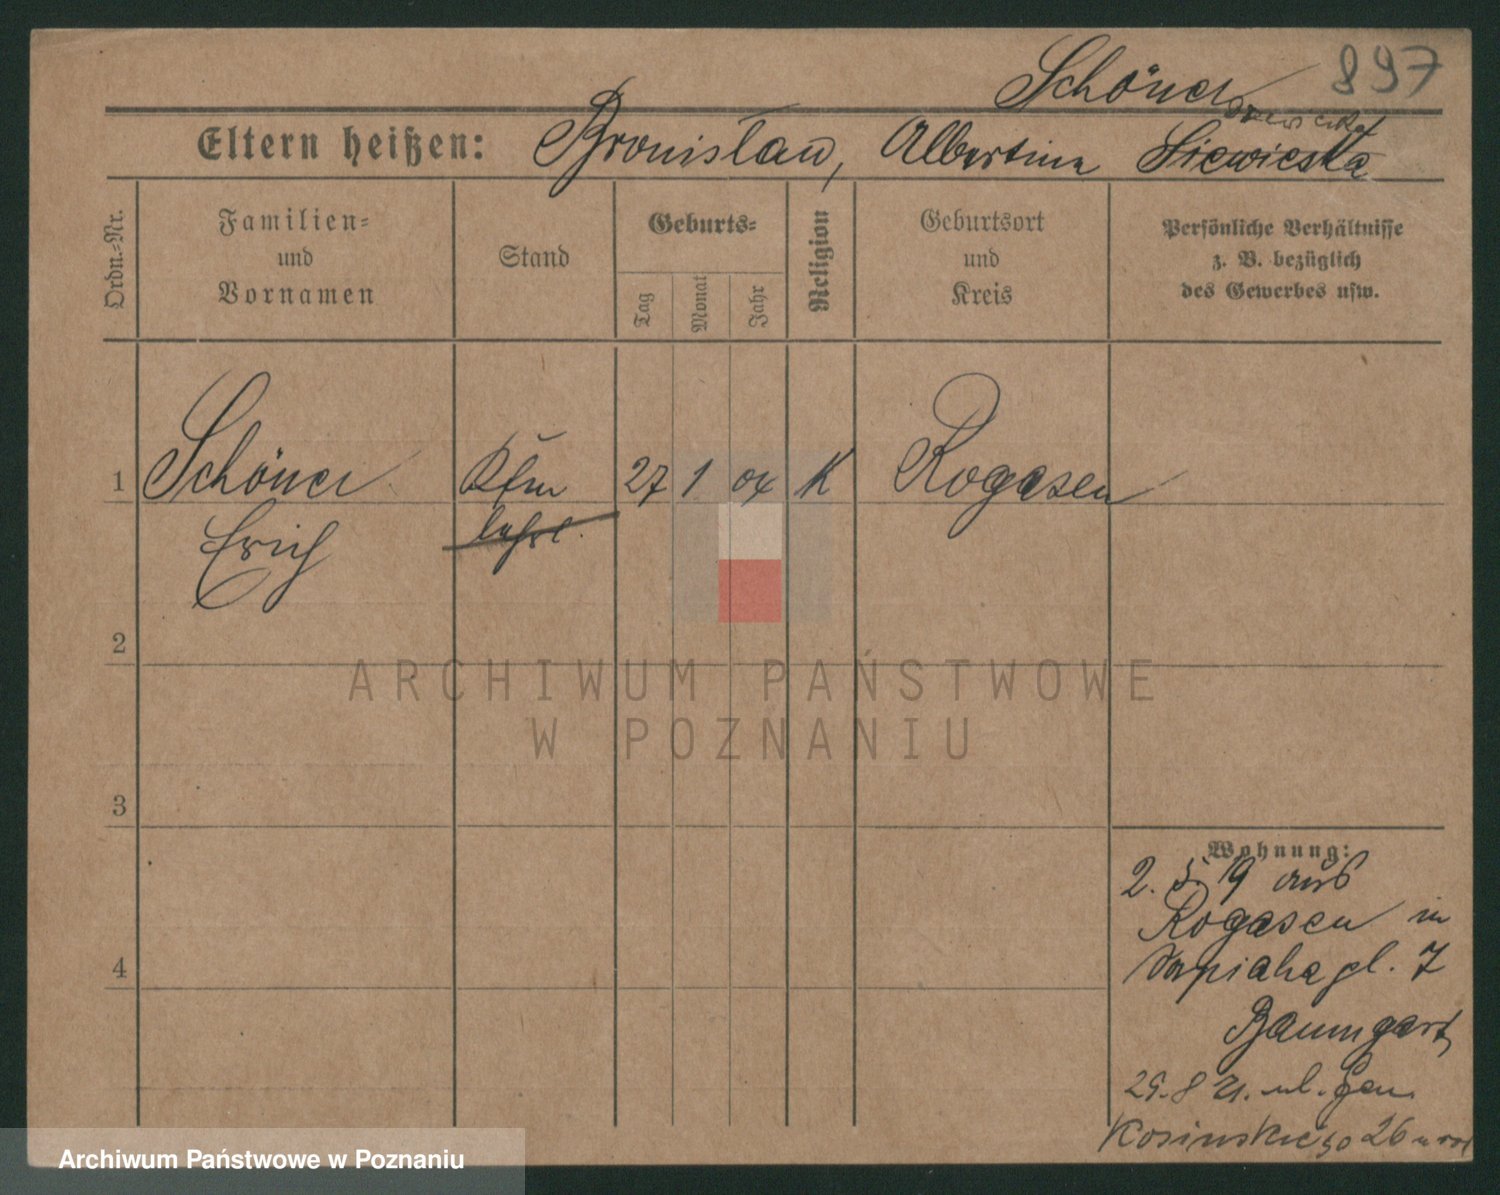 897
Schöner
Eltern heißen: Bronisław, Albertina Siewieska
Ordn.-Nr.
Familien-
und
Vornamen
Stand
Geburts-
Tag
Monat
Jahr
Religion
Geburtsort
und
Kreis
Persönliche Verhältnisse
z. B. bezüglich
des Gewerbes usw.
1 Schöner Kfm 27 1 04 K Rogasen
Erich lehrl.
2
3
4
Wohnung:
2. 5 19 aus
Rogasen in
Sapiehapl. 7
Baumgart
29. 8 21. ul. Gen.
Kosinskiego 26
ARCHIWUM PAŃSTWOWE
W POZNANIU
Archiwum Państwowe w Poznaniu